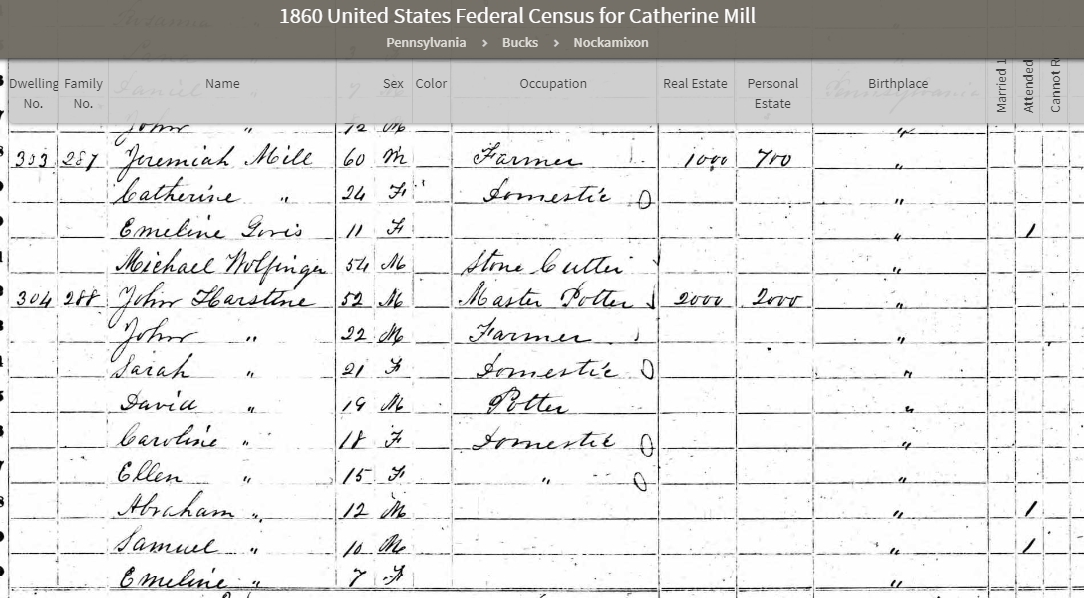 1860 United States Federal Census for Catherine Mill
Pennsylvania > Bucks > Nockamixon
Dwelling No. Family No. Name Sex Color Occupation Real Estate Personal Estate Birthplace Married Attended Cannot R
John " 12 M "
303 287 Jeremiah Mill 60 M Farmer 1000 700 "
Catherine " 24 F Domestic "
Emeline 11 F " 1
Michael Wolfinger 54 M Stone Cutter "
304 288 John Harstine 52 M Master Potter 2000 2000 "
John " 22 M Farmer "
Sarah " 21 F Domestic "
David " 19 M Potter "
Caroline " 18 F Domestic "
Ellen " 15 F " "
Abraham " 12 M " 1
Samuel " 10 M " 1
Emeline " 7 F "